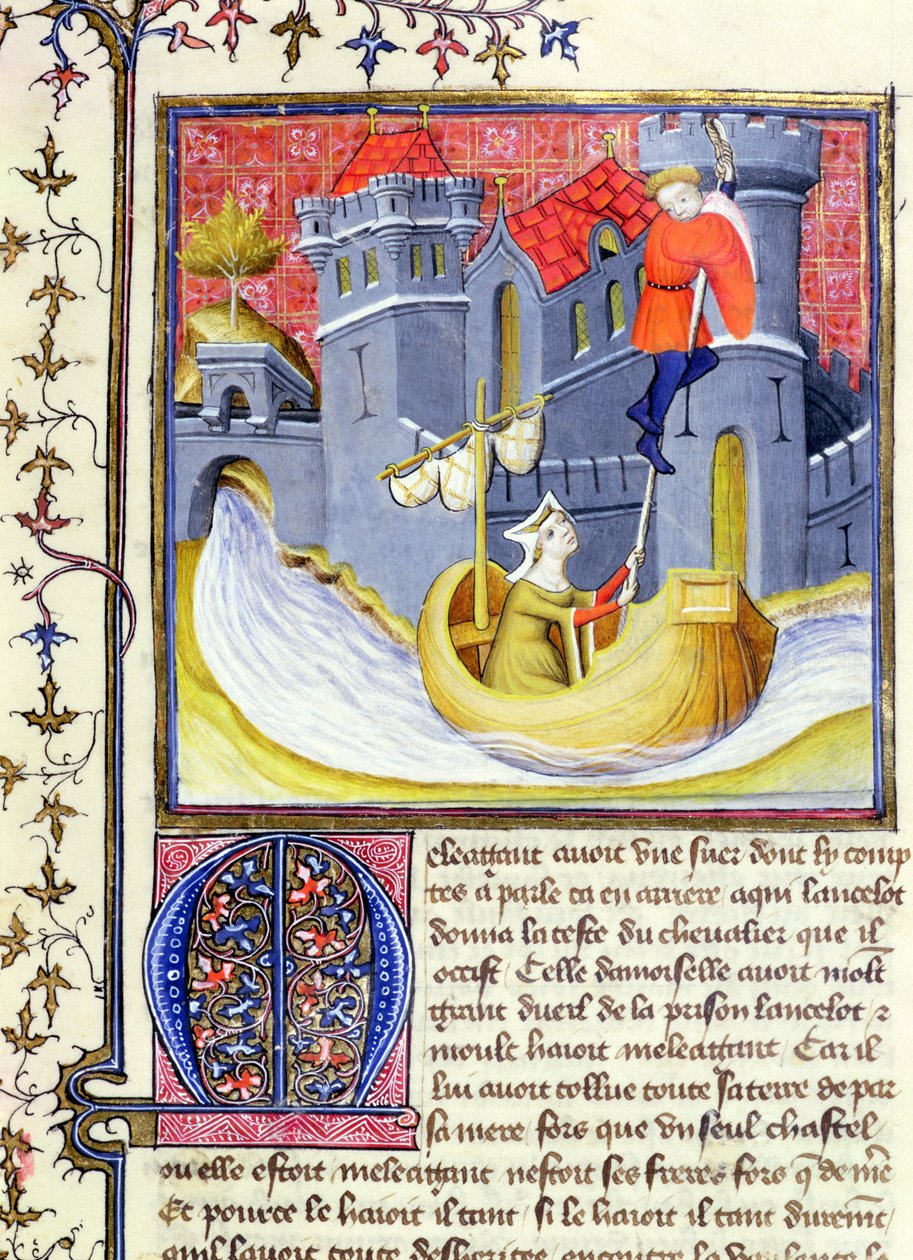 Meleagant auoit vne suer dont ly comp
tes a parle ca en arriere aqui lancelot
donna la teste du cheualier que il
occist Celle damoiselle auoit molt
grant dueil de la prison lancelot ⁊
moult haioit meleagant Car il
lui auoit tollue toute sa terre de par
sa mere fors que vn seul chastel
ou elle estoit meleagant nestoit ses freres fors q̄ de me͂
Et pource le haioit il tant si le haioit il tant durem̄t
quil lauoit toute desheritee encontre la